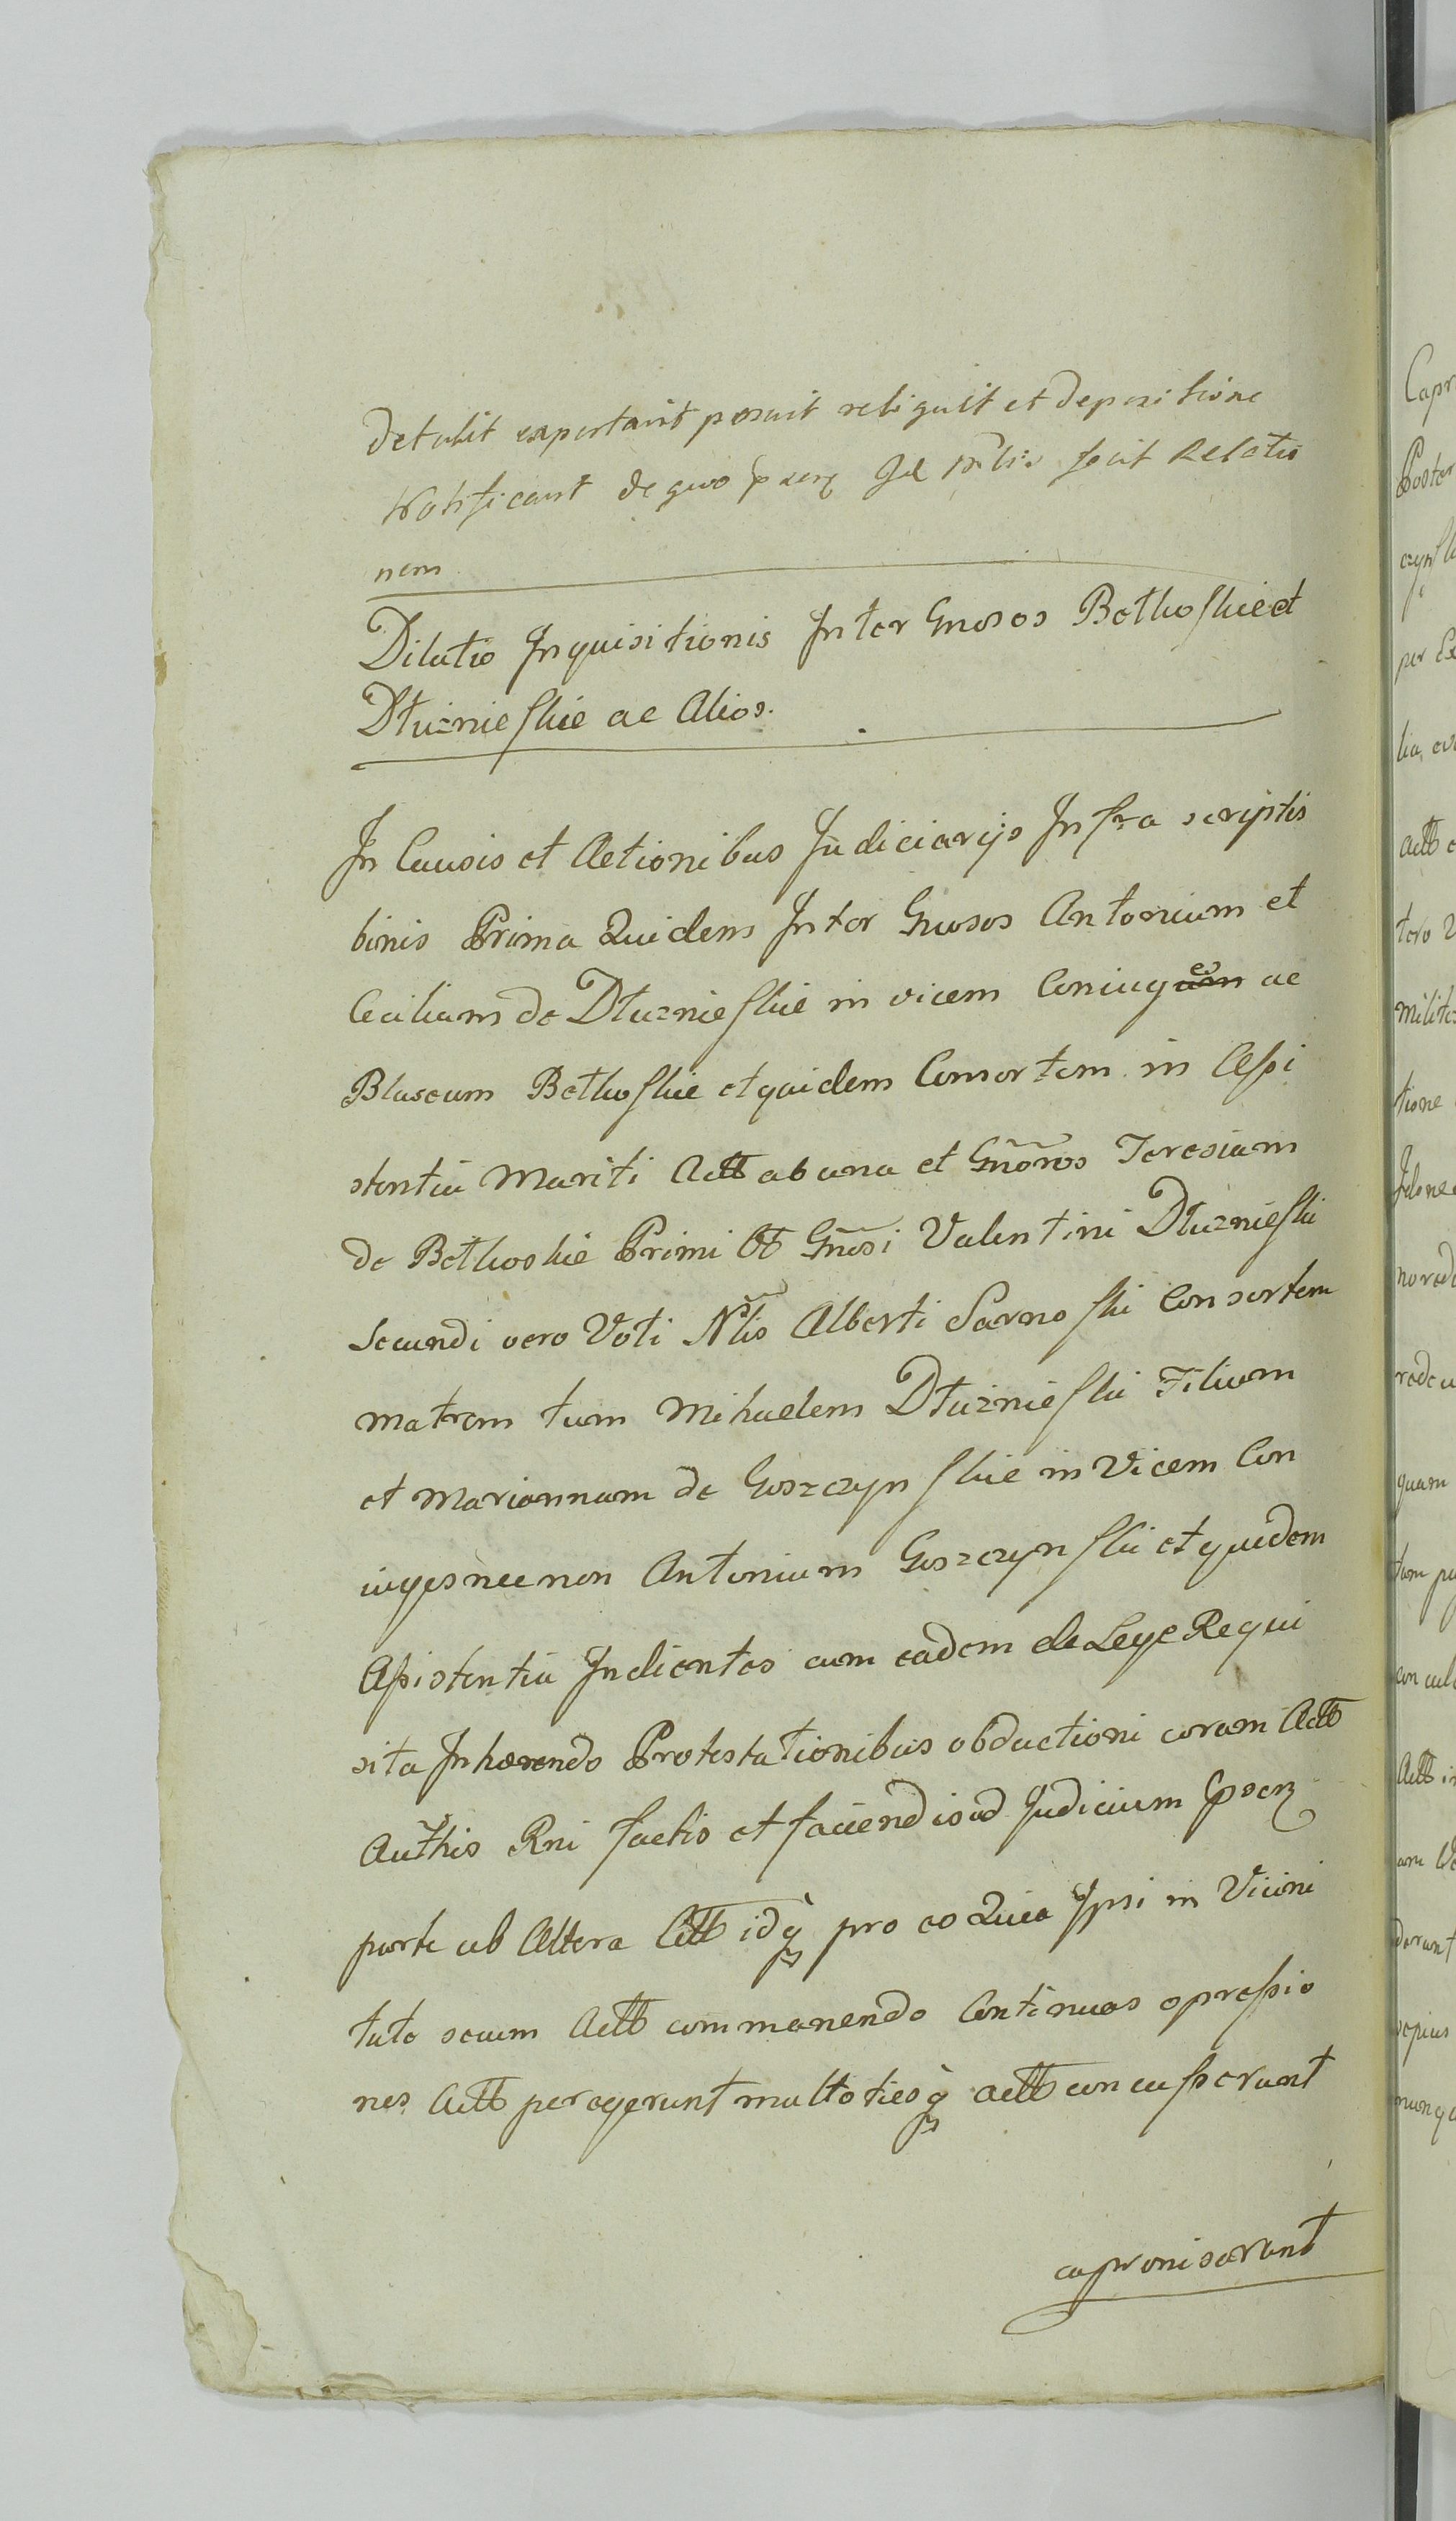 detulit exportavit posuit reliquit et depositione
notificavit de quo fecit Relatio
nem
Dilatio Inquisitionis Inter Gnosos Bethoskie et
Dłuznieskie ac Alios.
In Causis et Actionibus Judiciarijs Infra scriptis
binis Prima Quidem Inter Gnosos Antonium et
Ceciliam de Dłuznieskie in vicem Coniuges ac
Blaseum Bethoskie et quidem Consortem in Assi
stentia Mariti Actt ab una et Gnosos Teresiam
de Bethoskie Primi Gnosi Valentini Dłuznieski
Secundi vero Voti Nblis Alberti Sarnoski Consortem
matrem tum Mihaelem Dłuznieski Filium
et Mariannam de Goszczynskie in Vicem Con
iuges nec non Antonium Goszczynski et quidem
Assistentia Indientes cum eadem de Lege Requi
sita Inhærendo Protestationibus obductioni coram Actt
Authis Rni factis et faciendis ad Judicium
parte ab Altera Actt idq pro eo Quia Ipsi in Vicini
tate secum Actt commanendo Continuas opressio
nes Actt peregerunt multotiesq actt concusserunt
caproniserunt
Capr
Poster
czynsk
per Ex
lia,
Actt
tero
milite
tione
Idone
rede
quam
tum
Actt
derunt
sepius
nunq